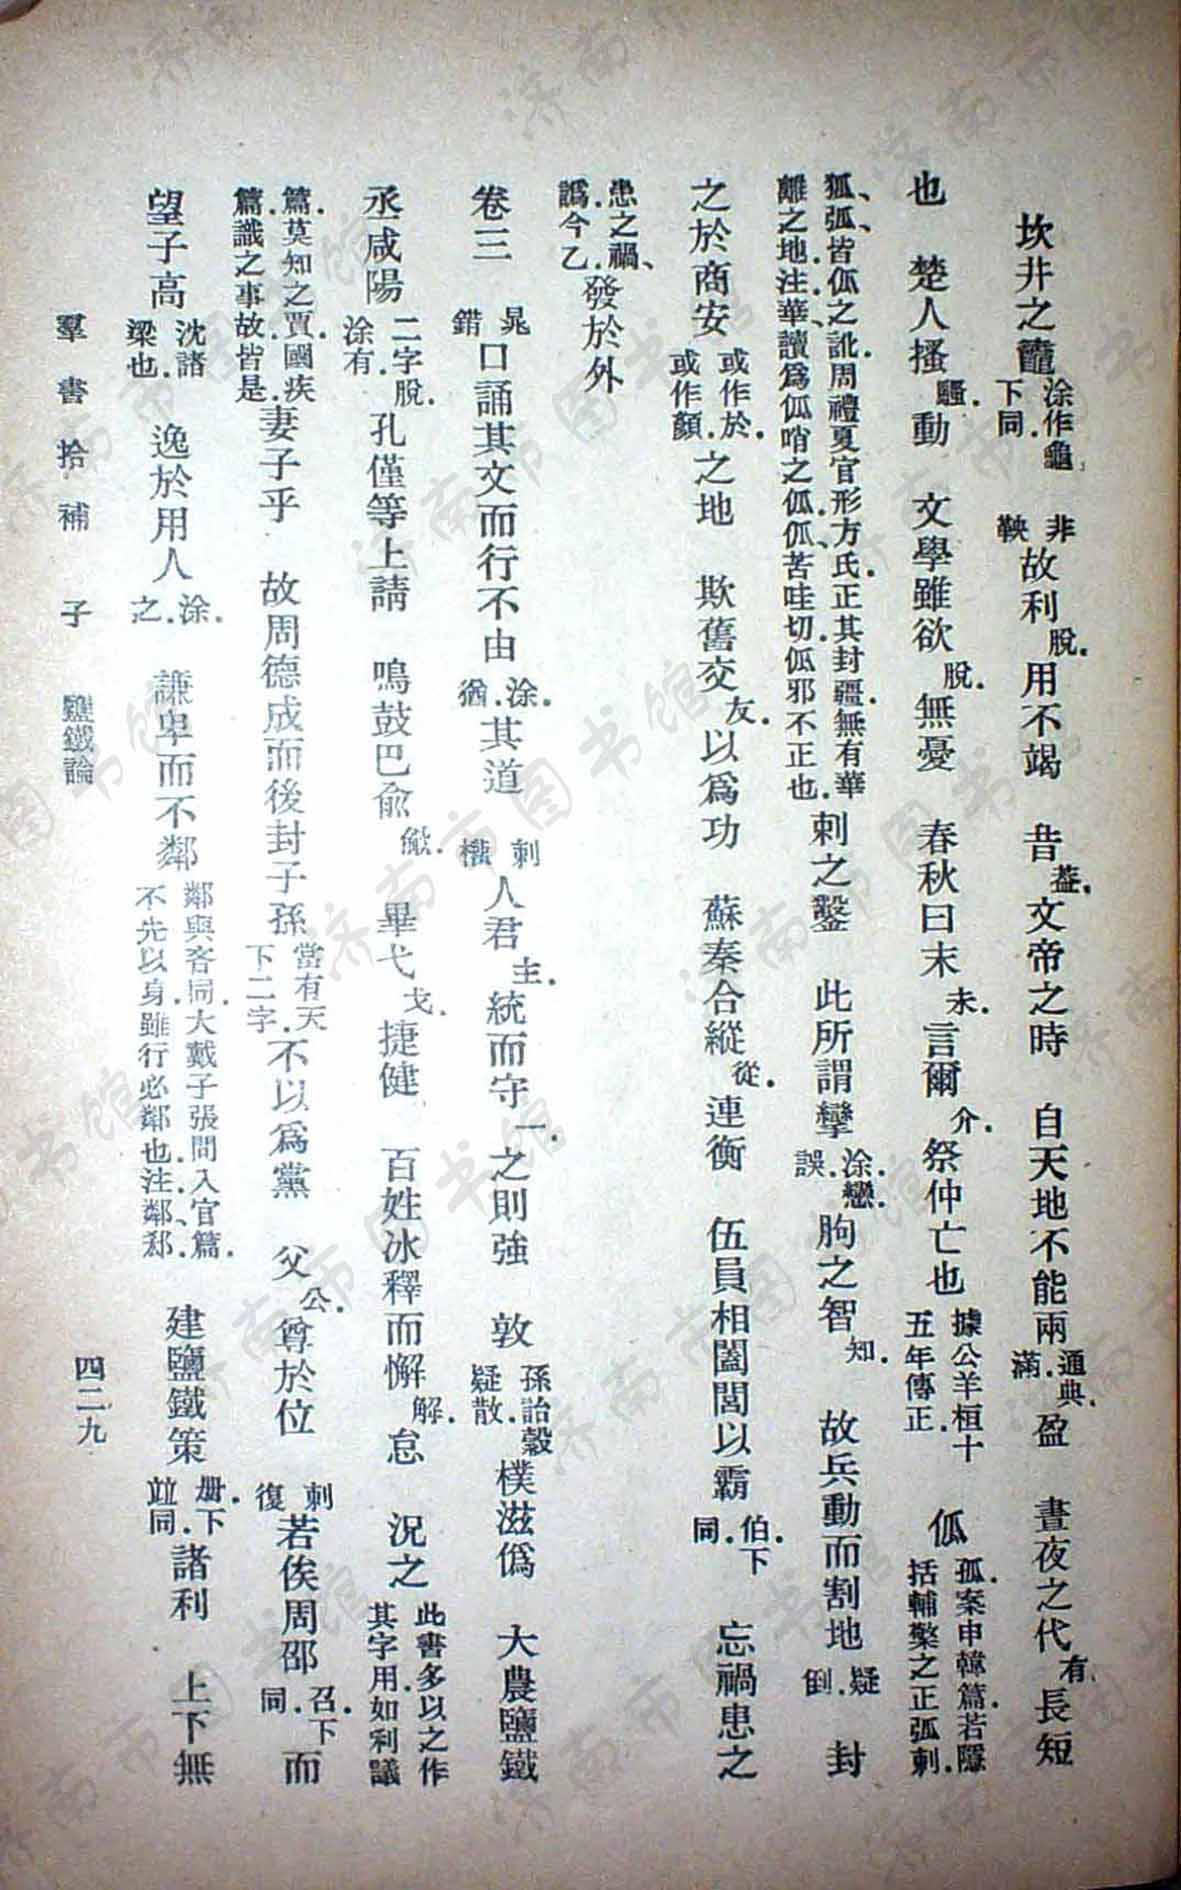 坎井之鼃涂作龜。下同。　非鞅故利脫。用不竭　昔蓋。文帝之時　自天地不能兩通典。滿。盈　晝夜之代有。長短
也　楚人搔騷。動　文學雖欲脫。無憂　春秋曰末未。言爾介。祭仲亡也據公羊桓十五年傳正。　㼌孤。案申韓篇若隱括輔檠之正弧剌。
狐、弧、皆㼌之訛。周禮夏官形方氏。正其封疆。無有華離之地。注。華、讀爲㼌哨之㼌。㼌、苦哇切。㼌邪不正也。刺之鑿　此所謂攣涂。戀。誤。朐之智知。　故兵動而割地疑倒。　封
之於商安或作於。或作顏。之地　欺舊交友。以爲功　蘇秦合縱從。連衡　伍員相闔閭以霸伯。下同。　忘禍患之
患之禍、譌。今乙。發於外
卷三　晁錯口誦其文而行不由涂。猶。其道　刺權人君主。統而守一。之則強　敦孫詒穀疑散。樸滋僞　大農鹽鐵
丞咸陽二字脫。涂有。孔僅等上請　鳴鼓巴俞歈。　畢弋戈。捷健　百姓冰釋而懈解。怠　況之此書多以之作其字用。如利議
篇。莫知之賈。國疾篇。識之事故。皆是。妻子乎　故周德成而後封子孫當有天下二字。不以爲黨　父公。尊於位　刺復若俟周邵召。下同。而
望子高沈諸梁也。　逸於用人涂。之。　謙卑而不鄰鄰與吝同。大戴子張問入官篇。不先以身。雖行必鄰也。注。鄰、郄。　建鹽鐵策册。下並同。諸利　上下無
羣書拾補　子　鹽鐵論　四二九
济南市图书馆